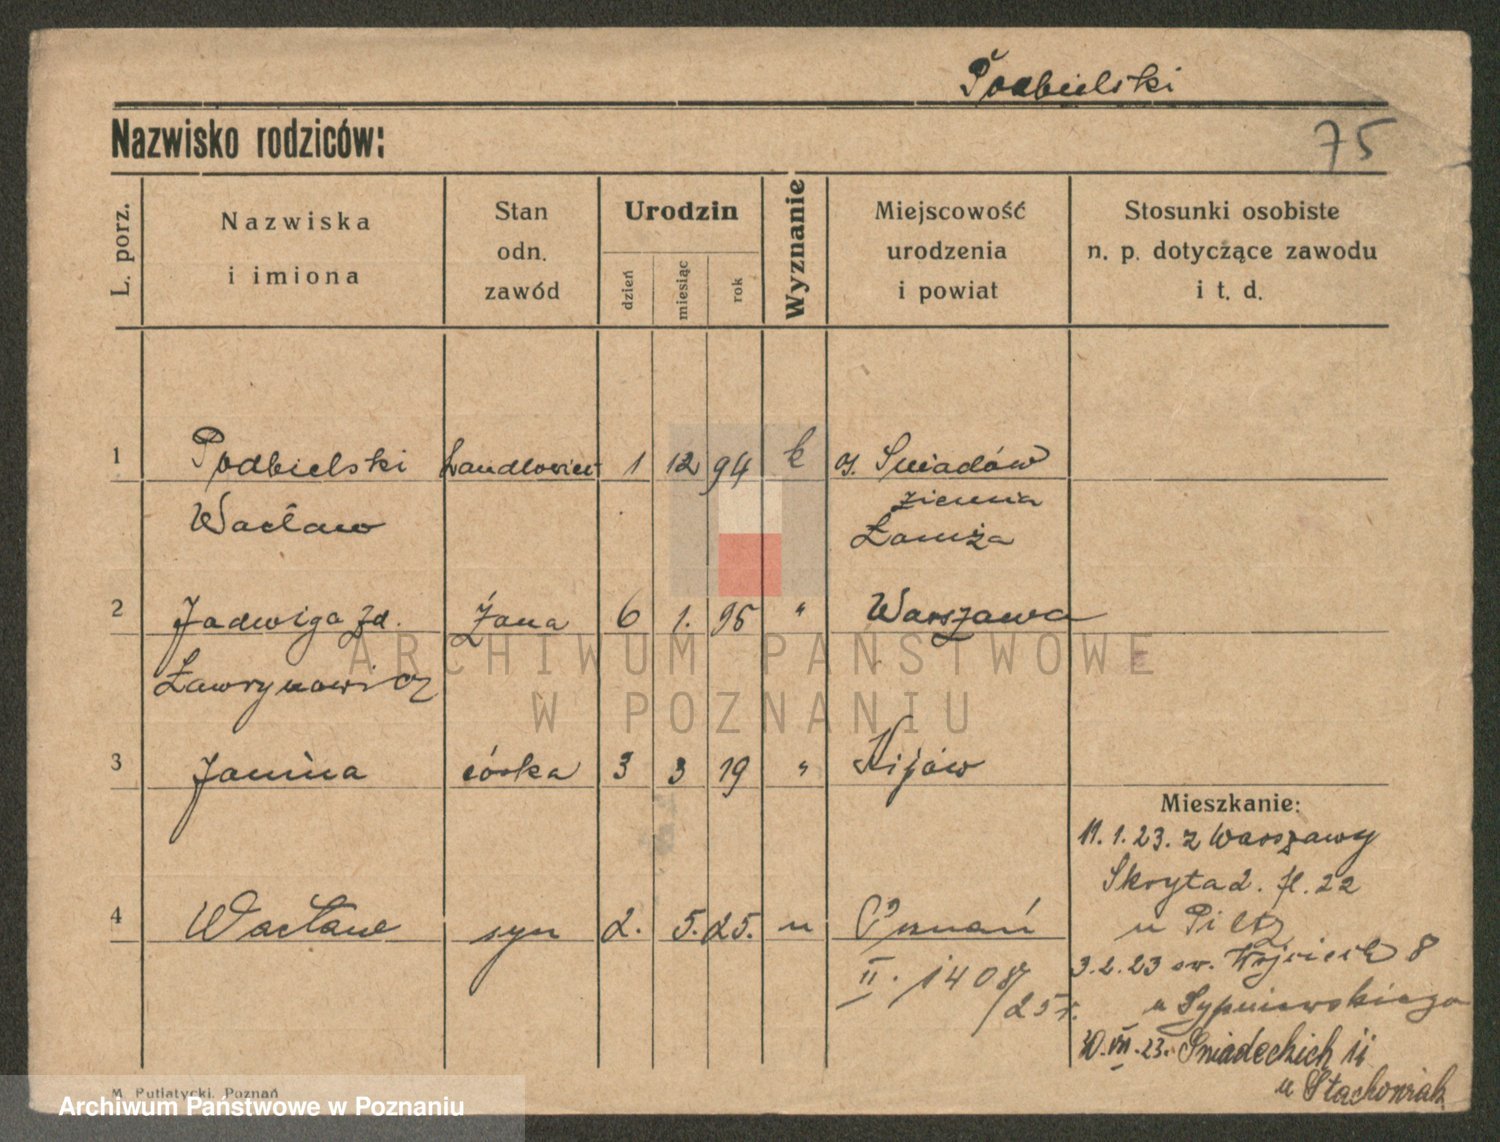 Podbielski
Nazwisko rodziców:
75
L. porz.
Nazwiska
i imiona
Stan
odn.
zawód
Urodzin
dzień
miesiąc
rok
Wyznanie
Miejscowość
urodzenia
i powiat
Stosunki osobiste
n. p. dotyczące zawodu
i t. d.
1 Podbielski handlowiec 1 12 94 k Śniadów
Wacław ziemia
Łomża
2 Jadwiga zd. Żona 6 1. 95 " Warszawa
Ławrynowicz
3 Janina córka 3 3 19 " Kijów
Mieszkanie:
11.1.23. z Warszawy
Skryta 2. fl. 22
u Piltz
4 Wacław syn 2. 5. 25. " Poznań
3.2.23 św. Wojciech 8
II. 1408/25 r.
u Sypniewskiego
30.VII.23. Śniadeckich 11
u Stachowiak
M. Putiatycki, Poznań
ARCHIWUM PAŃSTWOWE
W POZNANIU
Archiwum Państwowe w Poznaniu